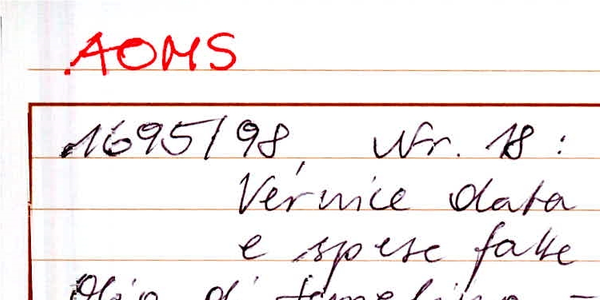 AOMS
1695/98, Nr. 18:
Vernice data
e spese fatte
Olio di